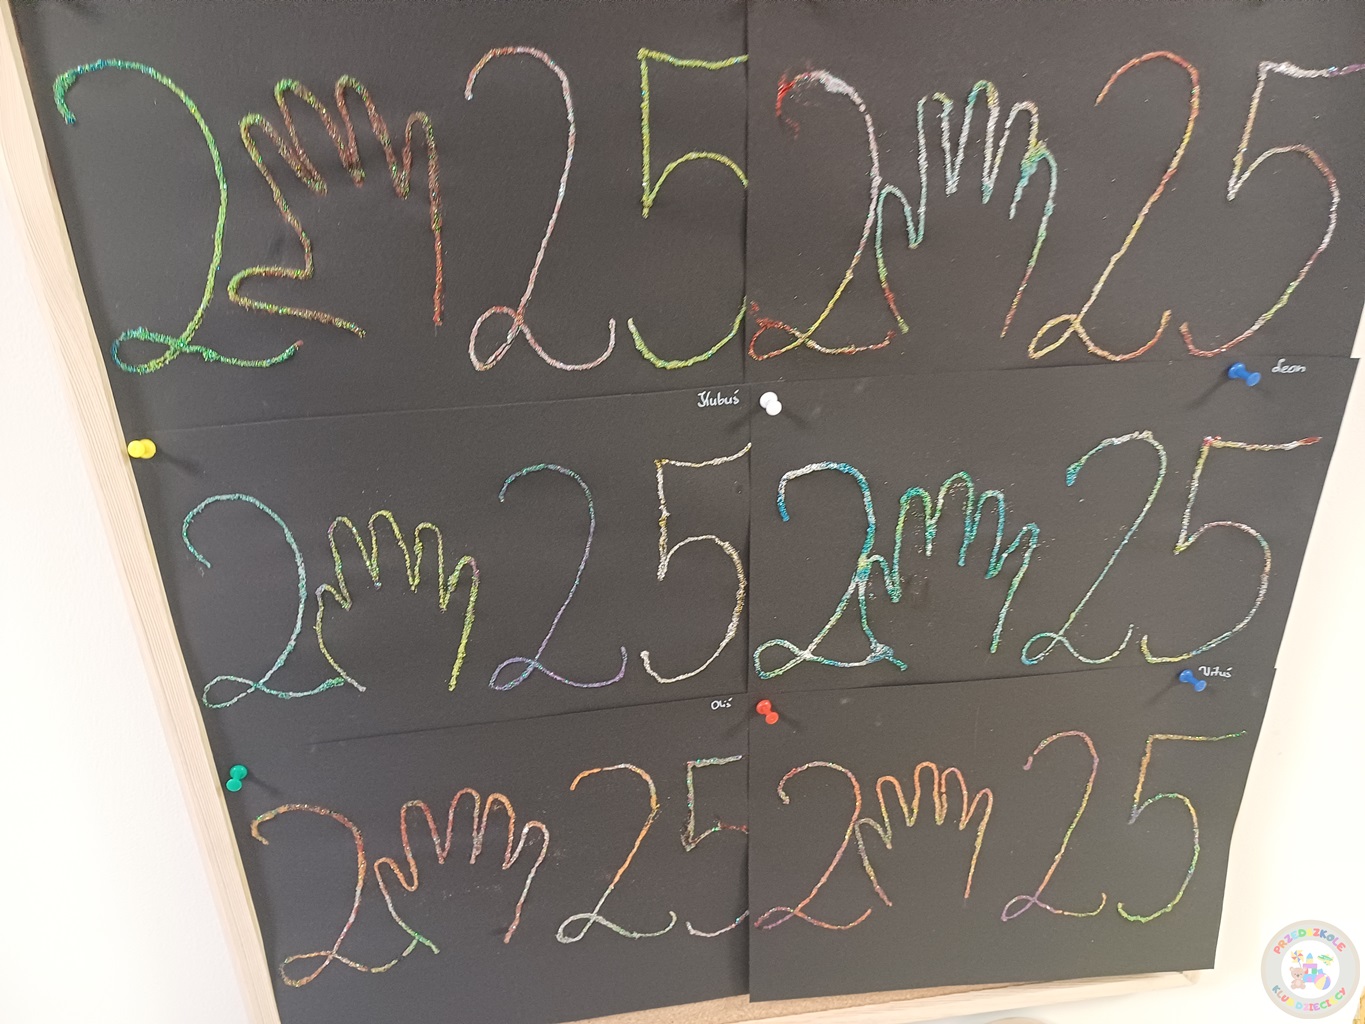 2 25
2 25
Kubuś
Leon
2 25
2 25
Oliś
Wituś
2 25
2 25
PRZEDSZKOLE
KLUB DZIECIĘCY